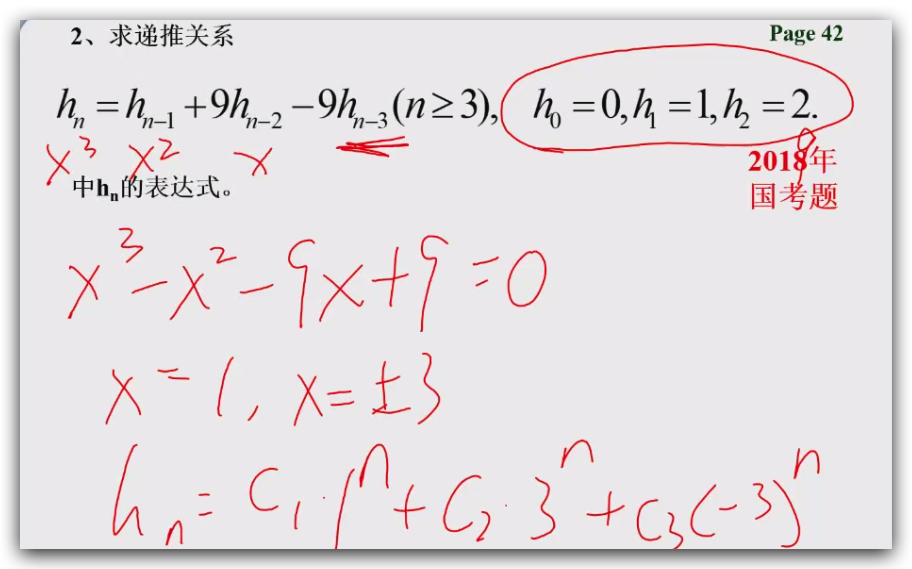 2、求递推关系
Page 42
hₙ = hₙ₋₁ + 9hₙ₋₂ − 9hₙ₋₃ (n ≥ 3), h₀ = 0, h₁ = 1, h₂ = 2.
x³ x² x
2018年 9
中hₙ的表达式。
国考题
x³ − x² − 9x + 9 = 0
x = 1, x = ±3
hₙ = C₁·1ⁿ + C₂·3ⁿ + C₃(−3)ⁿ